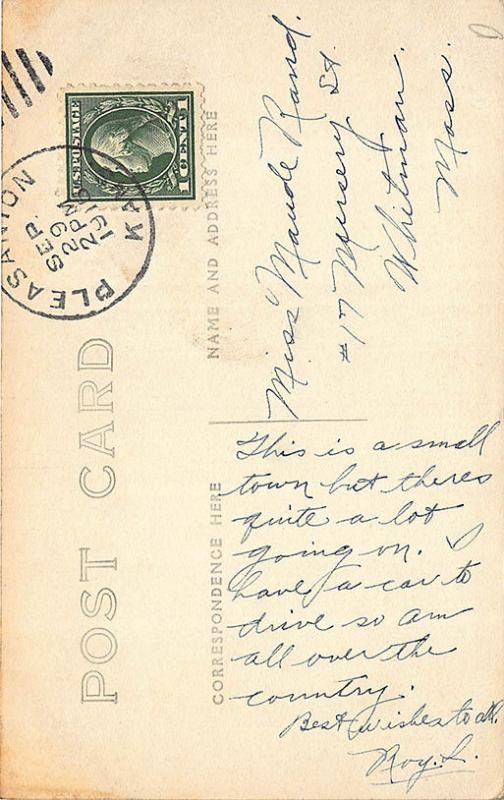 POST CARD
PLEASANTON
KAN
SEP
29
2 PM
U.S. POSTAGE
1 CENT 1
NAME AND ADDRESS HERE
Miss Maude Rand.
#17 Nursery St.
Whitman.
Mass.
CORRESPONDENCE HERE
This is a small
town but theres
quite a lot
going on. I
have a car to
drive so am
all over the
country.
Best wishes to all.
Roy. L.